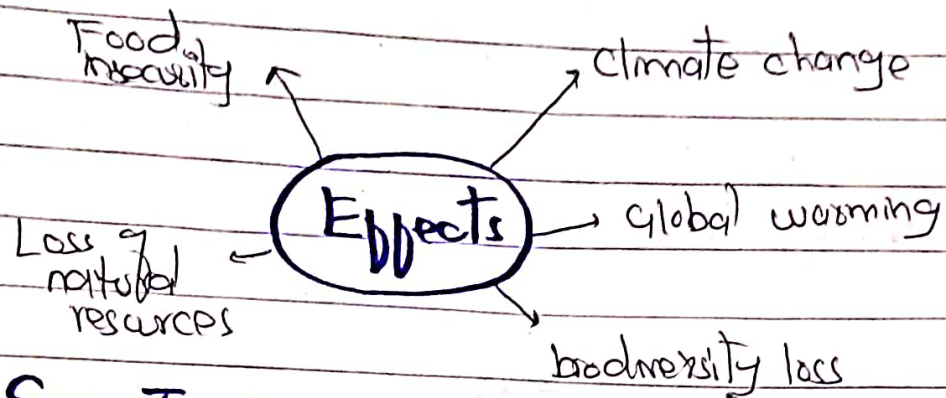 Food
insecurity
climate change
Effects
Global warming
Loss of
natural
resources
biodiversity loss